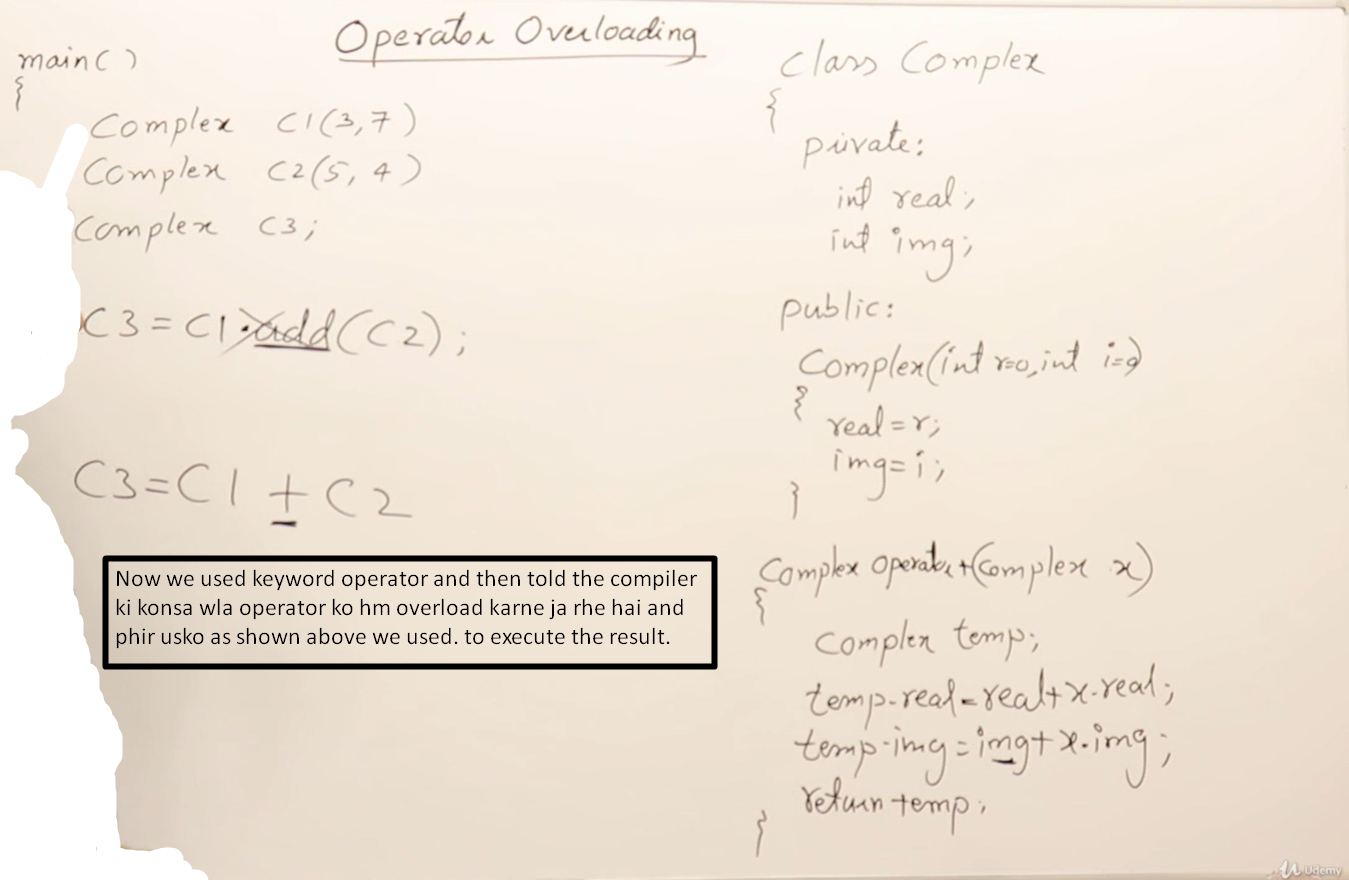 Operator Overloading
main()
{
Complex C1(3,7)
Complex C2(5, 4)
Complex C3;
C3=C1.add(C2);
C3=C1 + C2
Now we used keyword operator and then told the compiler
ki konsa wla operator ko hm overload karne ja rhe hai and
phir usko as shown above we used. to execute the result.
class Complex
{
private:
int real;
int img;
public:
Complex(int r=0,int i=0)
{
real=r;
img=i;
}
Complex operator+(Complex x)
{
Complex temp;
temp.real=real+x.real;
temp.img=img+x.img;
return temp;
}
Udemy